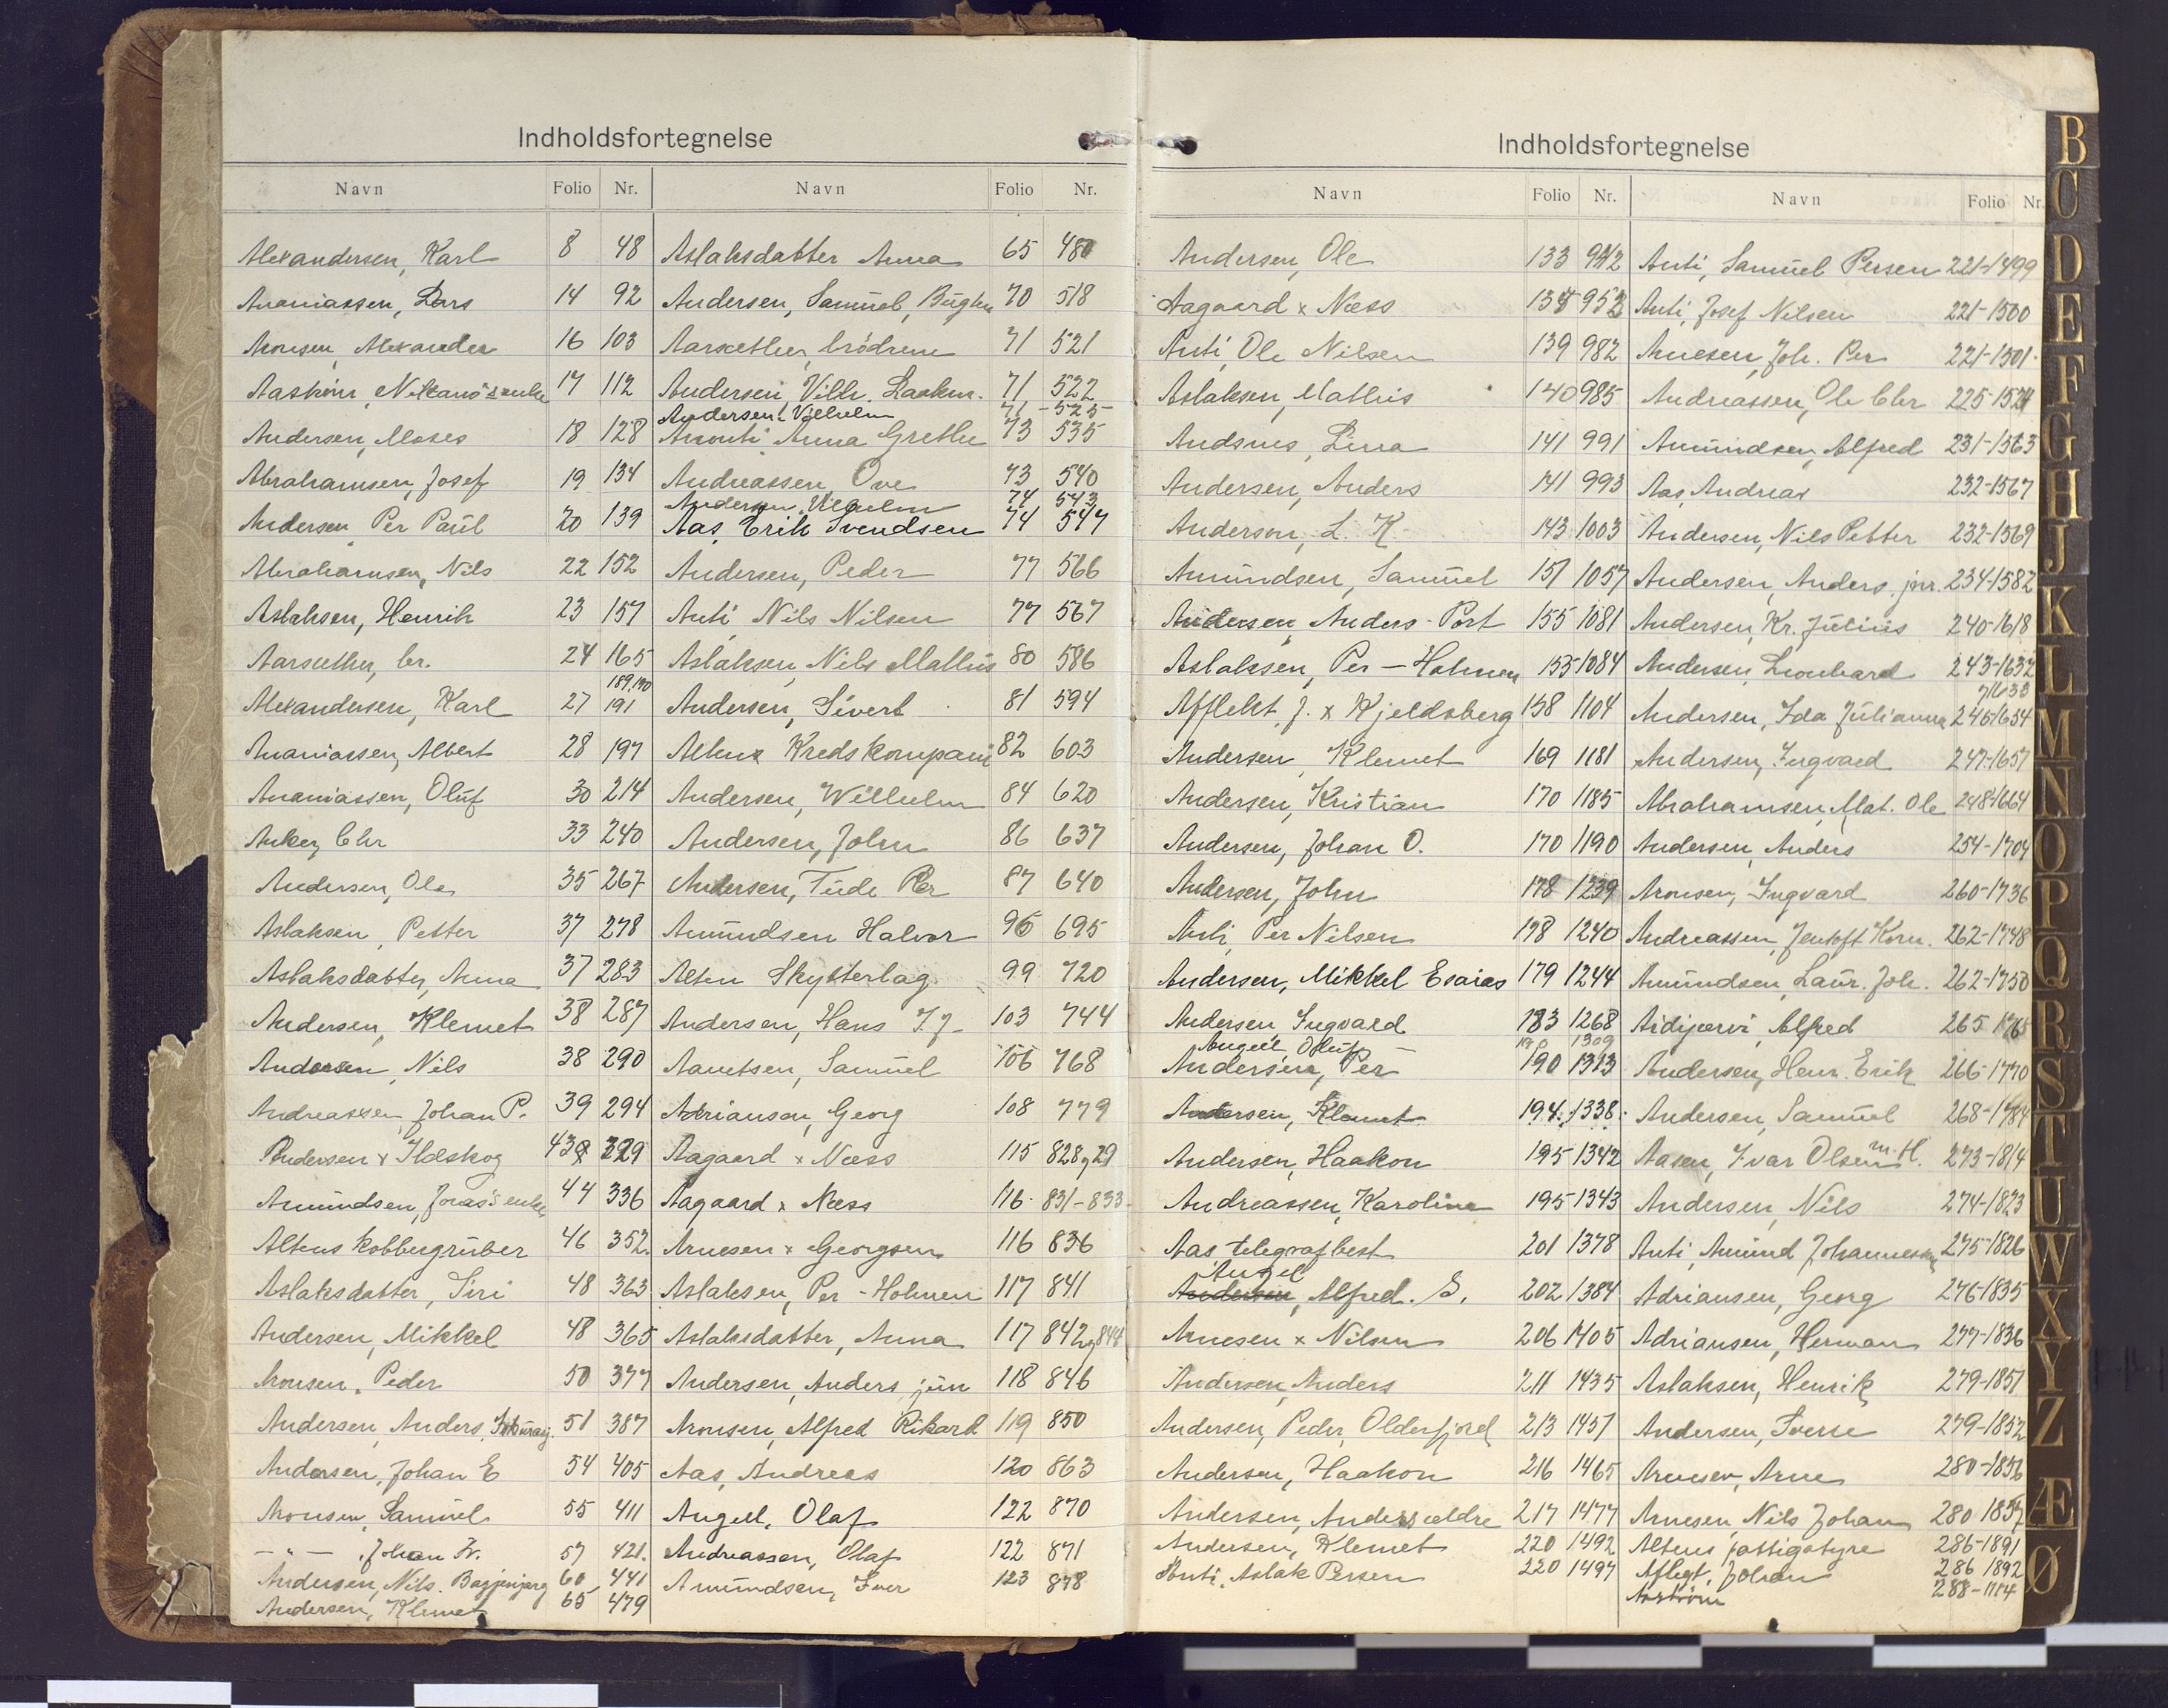 Indholdsfortegnelse
Navn Folio Nr. Navn Folio Nr.
Alexandersen, Karl 8 48
Ananiassen, Lars 14 92
Aronsen, Alexander 16 103
Aaström, Nikanö's enke 17 112
Andersen, Moses 18 128
Abrahamsen, Josef 19 134
Andersen Per Paul 20 139
Abrahamsen, Nils 22 152
Aslaksen, Henrik 23 157
Aarsæther, br. 24 165
189,190
Alexandersen, Karl 27 191
Ananiassen, Albert 28 197
Ananiassen, Oluf 30 214
Anker, Chr 33 240
Andersen, Ole 35 267
Aslaksen, Petter 37 278
Aslaksdatter, Anna 37 283
Andersen, Klemet 38 287
Andersen, Nils 38 290
Andreassen, Johan P. 39 294
Andersen x Ildskog 43 329
Amundsen, Jonas's enke 44 336
Altens Kobbergruber 46 352
Aslaksdatter, Siri 48 363
Andersen, Mikkel 48 365
Aronsen, Peder 50 377
Andersen, Anders, 51 387
Andersen, Johan E 54 405
Aronsen, Samuel 55 411
— " — , Johan Fr. 57 421.
Andersen, Nils. 60 441
Andersen, Klemet 65 479
Aslaksdatter Anna 65 480
Andersen, Samuel, 70 518
Aarsæther, brödrene 71 521
Andersen, Vilh. 71 522
Andersen, Vilhelm 71 - 525
Anna Grethe 73 535
Andreassen Ove 73 540
Andersen, Vilhelm 74 543
Aas, Erik Svendsen 74 547
Andersen, Peder 77 566
Anti Nils Nilsen 77 567
Aslaksen, Nils Mathis 80 586
Andersen, Sivert 81 594
Altens Kredskompani 82 603
Andersen, Wilhelm 84 620
Andersen, John 86 637
Andersen, Per 87 640
Amundsen Halvor 96 695
Alten Skytterlag 99 720
Andersen, Hans I. J. 103 744
Samuel 106 768
Adriansen, Georg 108 779
Aagaard x Næss 115 828, 29
Aagaard x Næss 116 831-833
Arnesen x Georgsen 116 836
Aslaksen, Per - Holmen 117 841
Aslaksdatter, Anna 117 842 og 844
Andersen, Anders jun 118 846
Aronsen, Alfred Rikard 119 850
Aas, Andreas 120 863
Angell, Olaf 122 870
Andreassen, Olaf 122 871
Amundsen, Iver 123 878
Indholdsfortegnelse
Navn Folio Nr. Navn Folio Nr.
Andersen, Ole 133 942
Aagaard x Næss 135 952
Anti, Ole Nilsen 139 982
Aslaksen, Mathis 140 985
Andsnes, Lina 141 991
Andersen, Anders 141 993
Anderson, L. K 143 1003
Amundsen, Samuel 151 1057
Andersen, Anders - Port 155 1081
Aslaksen, Per - Holmen 155 1084
Afflekt, J. x Kjeldsberg 158 1104
Andersen, Klemet 169 1181
Andersen, Kristian 170 1185
Andersen, Johan O. 170 1190
Andersen, John 178 1239
Anti, Per Nilsen 178 1240
Andersen, Mikkel Esaias 179 1244
Andersen, Ingvard 183 1268
Angell, Oluf 1309
Andersen, Per 190 1313
Andersen, Klemet 194 1338
Andersen, Haakon 195 1342
Andreassen, Karoline 195 1343
Aas telegrafbest 201 1378
Angel
Andersen, Alfred. S. 202 1384
Arnesen x Nilsen 206 1405
Andersen, Anders 211 1435
Andersen, Peder, Olderfjord 213 1451
Andersen, Haakon 216 1465
Andersen, Anders ældre 217 1477
Andersen, Klemet 220 1492
Anti, Aslak Persen 220 1497
Anti, Samuel Persen 221-1499
Anti, Josef Nilsen 221-1500
Arnesen, Joh. Per 221-1501
Andreassen, Ole Chr 225-1524
Amundsen, Alfred 231-1563
Aas, Andreas 232-1567
Andersen, Nils Petter 232-1569
Andersen, Anders, jnr. 234-1582
Andersen, Kr. Julius 240-1618
Andersen, Leonhard 243-1632
Andersen, Ida Julianna 246-1654
Andersen, Ingvard 247-1657
Abrahamsen, Mat. Ole 248-1664
Andersen, Anders 254-1704
Aronsen, Ingvard 260-1736
Andreassen, Jentoft Korn. 262-1748
Amundsen, Laur. Joh. 262-1750
Aidijærvi, Alfred 265
Andersen, Henr. Erik 266-1770
Andersen, Samuel 268-1784
Aasen, Ivar Olsen m. H. 273-1814
Andersen, Nils 274-1823
Anti, Amund Johannesen 275-1826
Adriansen, Georg 276-1835
Adriansen, Herman 277-1836
Aslaksen, Henrik 279-1851
Andersen, Sverre 279-1852
Arnesen, Arne 280-1856
Arnesen, Nils Johan 280 1857
Altens fattigstyre 286-1891
Aflegt, Johan 286 1892
Aaström 288-
B
C
D
E
F
G
H
J
K
L
M
N
O
P
Q
R
S
T
U
W
X
Y
Z
Æ
Ø